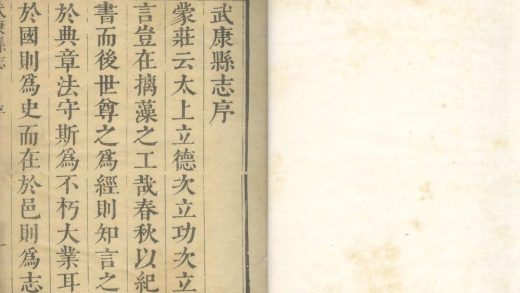 武康縣志序
蒙莊云太上立德次立功次立
言豈在摛藻之工哉春秋以紀
書而後世尊之為經則知言之
於典章法守斯為不朽大業耳
於國則為史而在於邑則為志
武康縣志 序 一